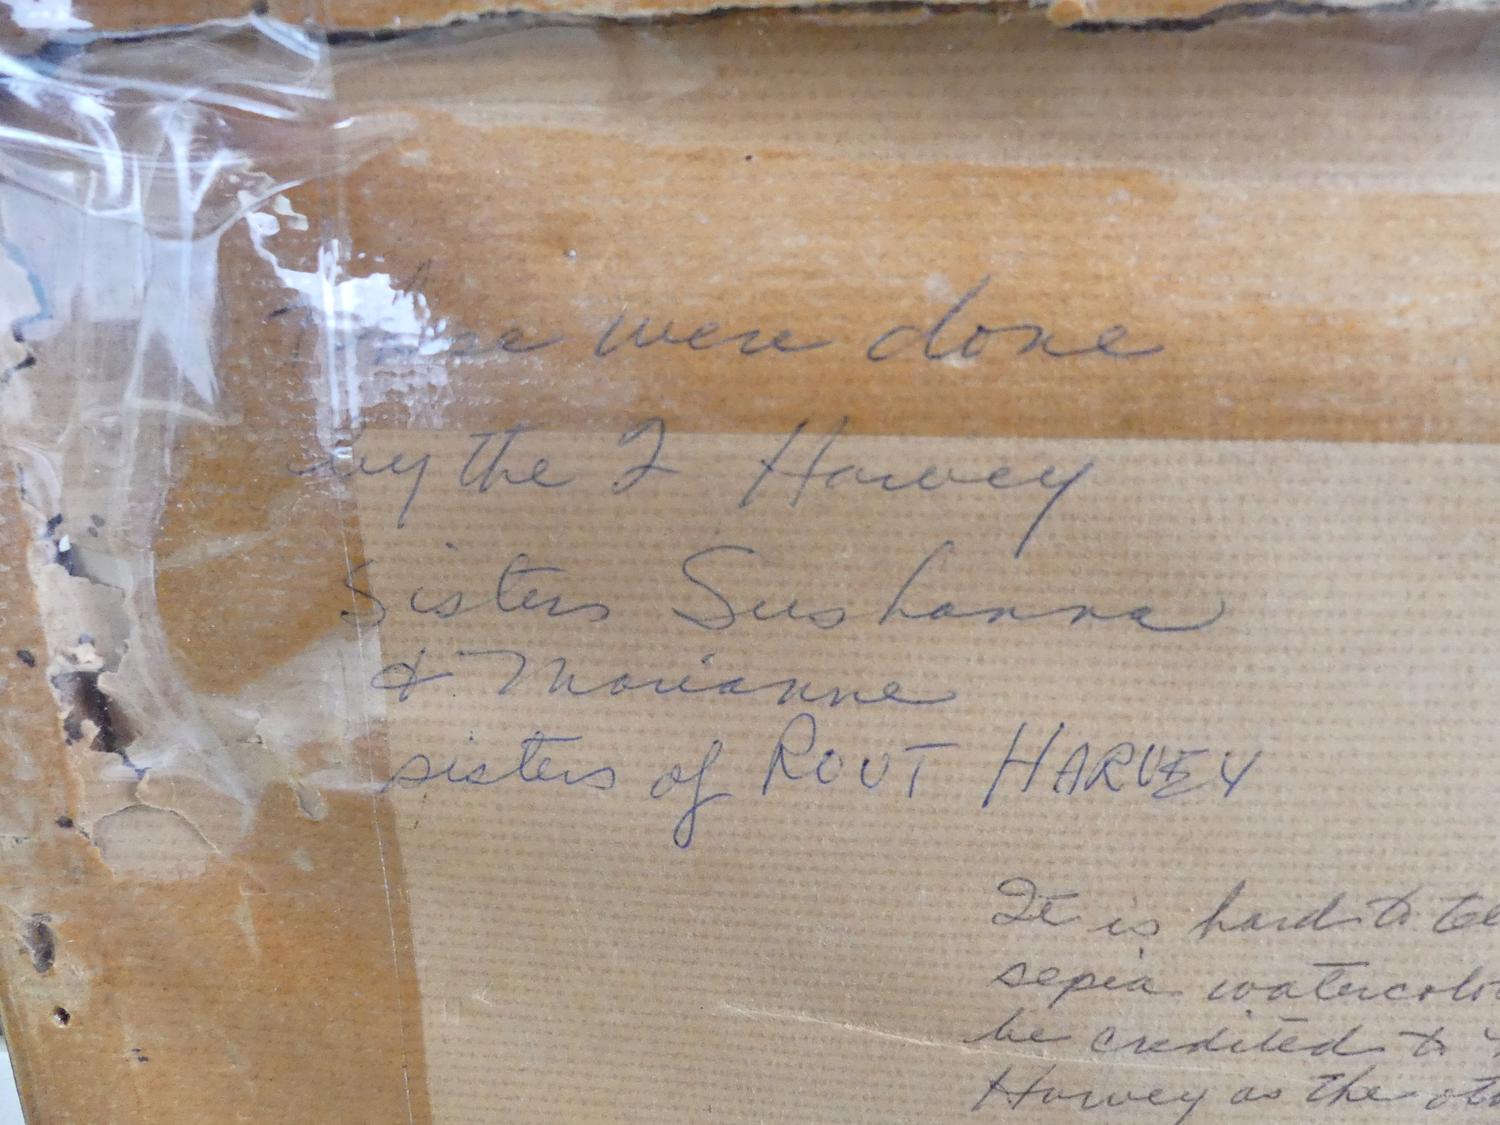 These were done
by the 2 Harvey
Sisters Sushanna
& Marianne
sisters of ROUT HARVEY
It is hard to
sepia
be credited to
Harvey as the